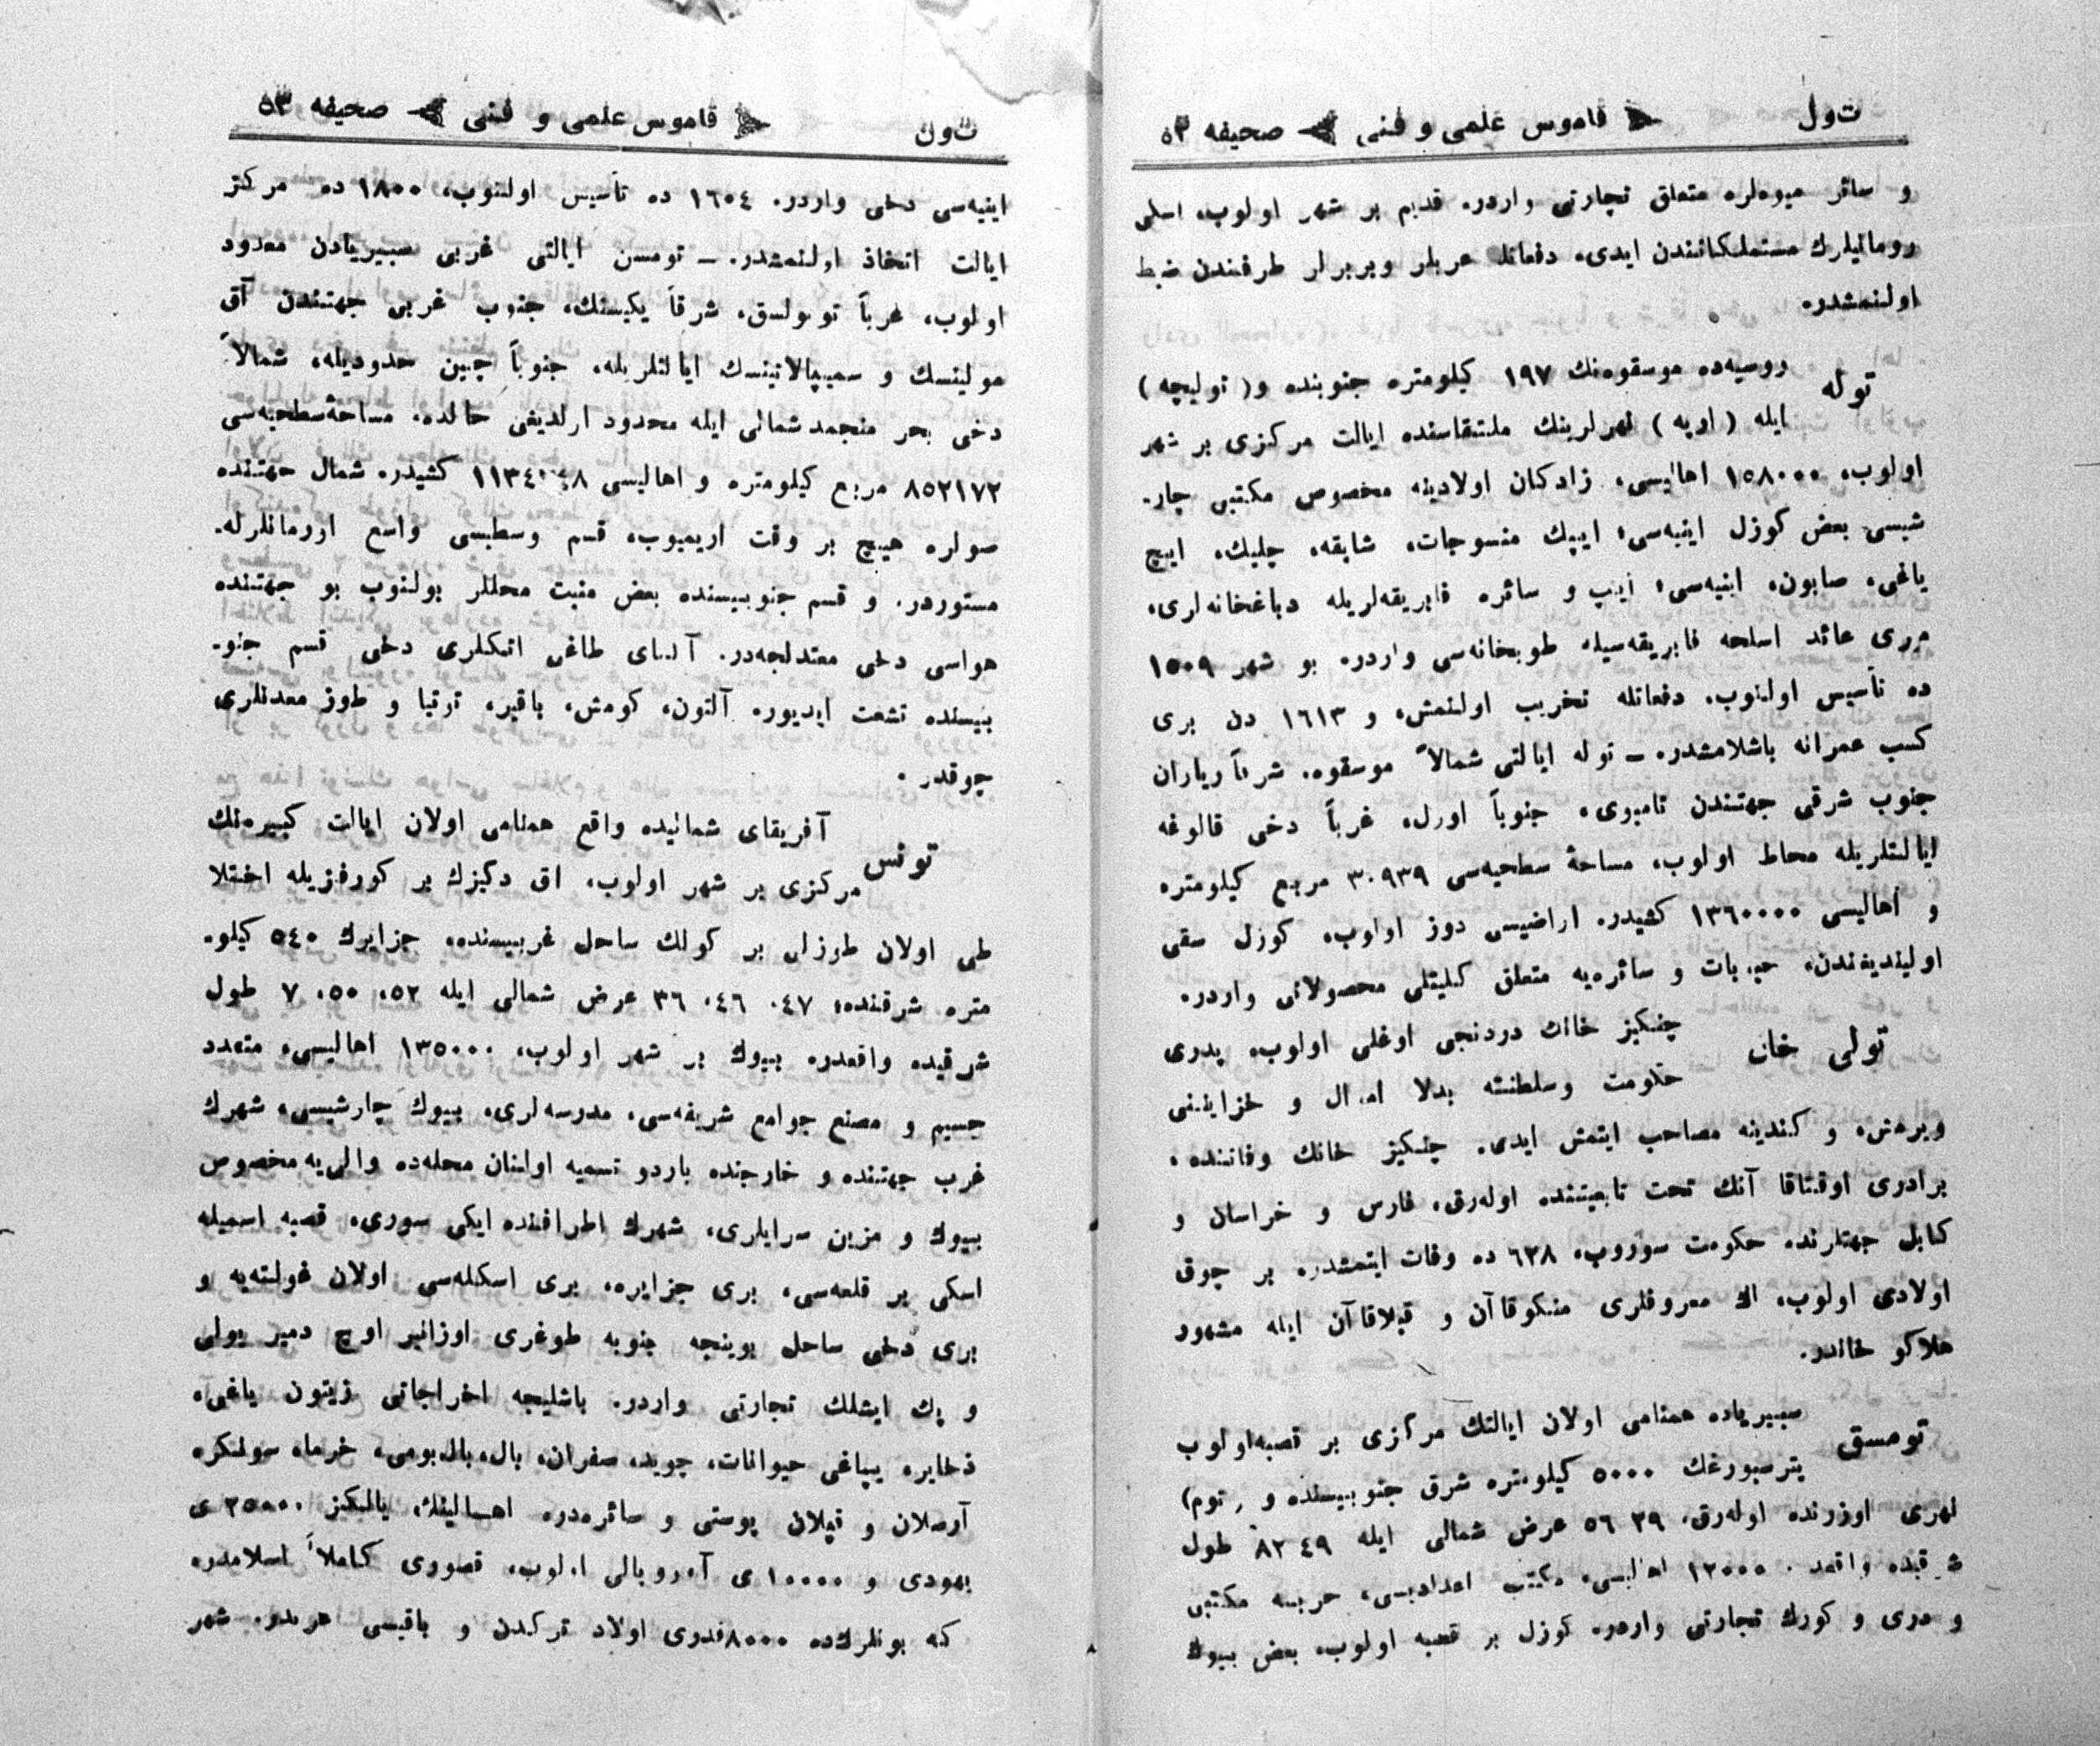 ت‌ول قاموس علمی و فنی صحیفه ٥٣
و سائر میوه‌لره متعلق تجارتی واردر. قدیم بر شهر اولوب، اسلی
رومالیلرك مستملكاتندن ایدی، دفعاتله عربلر وبربرلر طرفندن ضبط
اولنمشدر.
توله روسیه‌ده موسقوه‌نك ١٩٧ كیلومتره جنوبنده و ( تولیچه )
ایله ( اوپه ) نهرلرینك ملتقاسنده ایالت مركزی بر شهر
اولوب، ١٥٨٠٠٠ اهالیسی، زادكان اولادینه مخصوص مكتبی چار-
شیسی بعض كوزل ابنیه‌سی؛ ایپك منسوجات، شابقه، چلیك، ایچ
یاغی، صابون، ابنیه‌سی؛ ایپ و سائره فابریقه‌لریله دباغخانه‌لری،
میری عائد اسلحه فابریقه‌سیله طوبخانه‌سی واردر. بو شهر ١٥٠٩
ده تأسیس اولنوب، دفعاتله تخریب اولنمش، و ١٦١٣ دن بری
كسب عمرانه باشلامشدر. ــ توله ایالتی شمالاً موسقوه، شرقاً ریازان
جنوب شرقی جهتندن تامبوی، جنوباً اورل، غرباً دخی قالوغه
ایالتلریله محاط اولوب، مساحهٔ سطحیه‌سی ٣٠٩٣٩ مربع كیلومتره
و اهالیسی ١٣٦٠٠٠٠ كشیدر. اراضیسی دوز اولوب، كوزل سقی
اولیندیغندن، حبوبات و سائره‌یه متعلق كلیتلی محصولاتی واردر.
تولی خان چنكیز خانك دردنجی اوغلی اولوب، پدری
حكومت وسلطنته بدلا اموال و خزاینی
ویرمش، و كندینه مصاحب ایتمش ایدی. چنكیز خانك وفاتنده،
برادری اوقتاقا آنك تحت تابعیتنده اوله‌رق، فارس و خراسان و
كابل جهتلرنده حكومت سوروب، ٦٢٨ ده وفات ایتمشدر. بر چوق
اولادی اولوب، اك معروفلری منكوقاآن و قبلاقاآن ایله مشهور
هلاكو خاندر.
تومسق سبیریاده همنامی اولان ایالتك مركزی بر قصبه‌اولوب
پترسبورغك ٥٠٠٠ كیلومتره شرق جنوبیسنده و (توم)
نهری اوزرنده اوله‌رق، ٢٩ ٥٦ عرض شمالی ایله ٤٩ ٨٢ طول
شرقیده واقعدر. ١٢٠٠٠ اهالیسی، مكتب اعدادیسی، حربیه مكتبی
و دری و كورك تجارتی واردر. كوزل بر قصبه اولوب، بعض بیوك
ت‌ون قاموس علمی و فنی صحیفه ٥٣
ابنیه‌سی دخی واردر. ١٦٠٤ ده تأسیس اولنوب، ١٨٠٠ ده مركز
ایالت اتخاذ اولنمشدر. ــ تومسن ایالتی غربی سبیریادن معدود
اولوب، غرباً توبولسق، شرقاً یكیسنك، جنوب غربی جهتندن آق
مولینسك و سمیپالاتینسك ایالتلریله، جنوباً چین حدودیله، شمالاً
دخی بحر منجمد شمالی ایله محدود اولدیغی حالده، مساحهٔ‌سطحیه‌سی
٨٥٢١٧٢ مربع كیلومتره و اهالیسی كشیدر. شمال جهتنده
صولره هیچ بر وقت اریمیوب، قسم وسطیسی واسع اورمانلرله-
مستوردر. و قسم جنوبیسنده بعض منبت محللر بولنوب بو جهتنده
هواسی دخی معتدلجه‌در. آلتای طاغی اتكلری دخی قسم جنو-
بیسنده تشعت ایدیور. آلتون، كومش، باقیر، توتیا و طوز معدنلری
چوقدر.
تونس آفریقای شمالیده واقع همنامی اولان ایالت كبیره‌نك
مركزی بر شهر اولوب، اق دكیزك بر كورفزیله اختلا
طی اولان طوزلی بر كولك ساحل غربیسنده، جزایرك ٥٤٠ كیلو-
متره شرقنده؛ ٤٧، ٤٦، ٣٦ عرض شمالی ایله ٥٢، ٥٠، ٧ طول
شرقیده واقعدر. بیوك بر شهر اولوب، ١٣٥٠٠٠ اهالیسی، متعدد
جسیم و مصنع جوامع شریفه‌سی، مدرسه‌لری، بیوك چارشیسی، شهرك
غرب جهتنده و خارجنده باردو تسمیه اولنان محله‌ده والی‌یه مخصوص
بیوك و مزین سرایلری، شهرك اطرافنده ایكی سوری، قصبه اسمیله
اسكی بر قلعه‌سی، بری جزایره، بری اسكله‌سی اولان غولته‌یه و
بری دخی ساحل بوینجه جنوبه طوغری اوزانیر اوچ دمیر یولی
و پك ایشلك تجارتی واردر. باشلیجه اخراجاتی زیتون یاغی،
ذخایر، یپاغی حیوانات، چوید، صفران، بال، بال‌بومی، خرما، سولنكر،
آرسلان و قپلان پوستی و سائره‌در. اهالینك یالكز ٢٥٠٠٠ ی
یهودی و ١٠٠٠٠ ی آوروپالی اولوب، قصوری كاملاً اسلامدر.
كه بونلرك‌ده ٨٠٠٠قدری اولاد تركدن و باقیسی عربدر. شهر